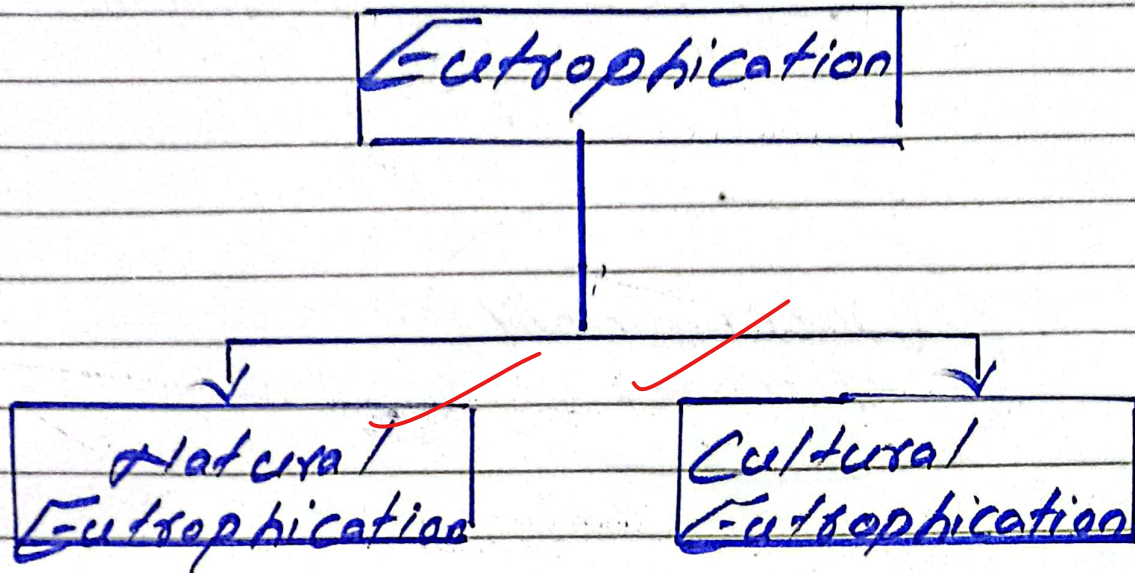 Eutrophication
Natural
Eutrophication
Cultural
Eutrophication